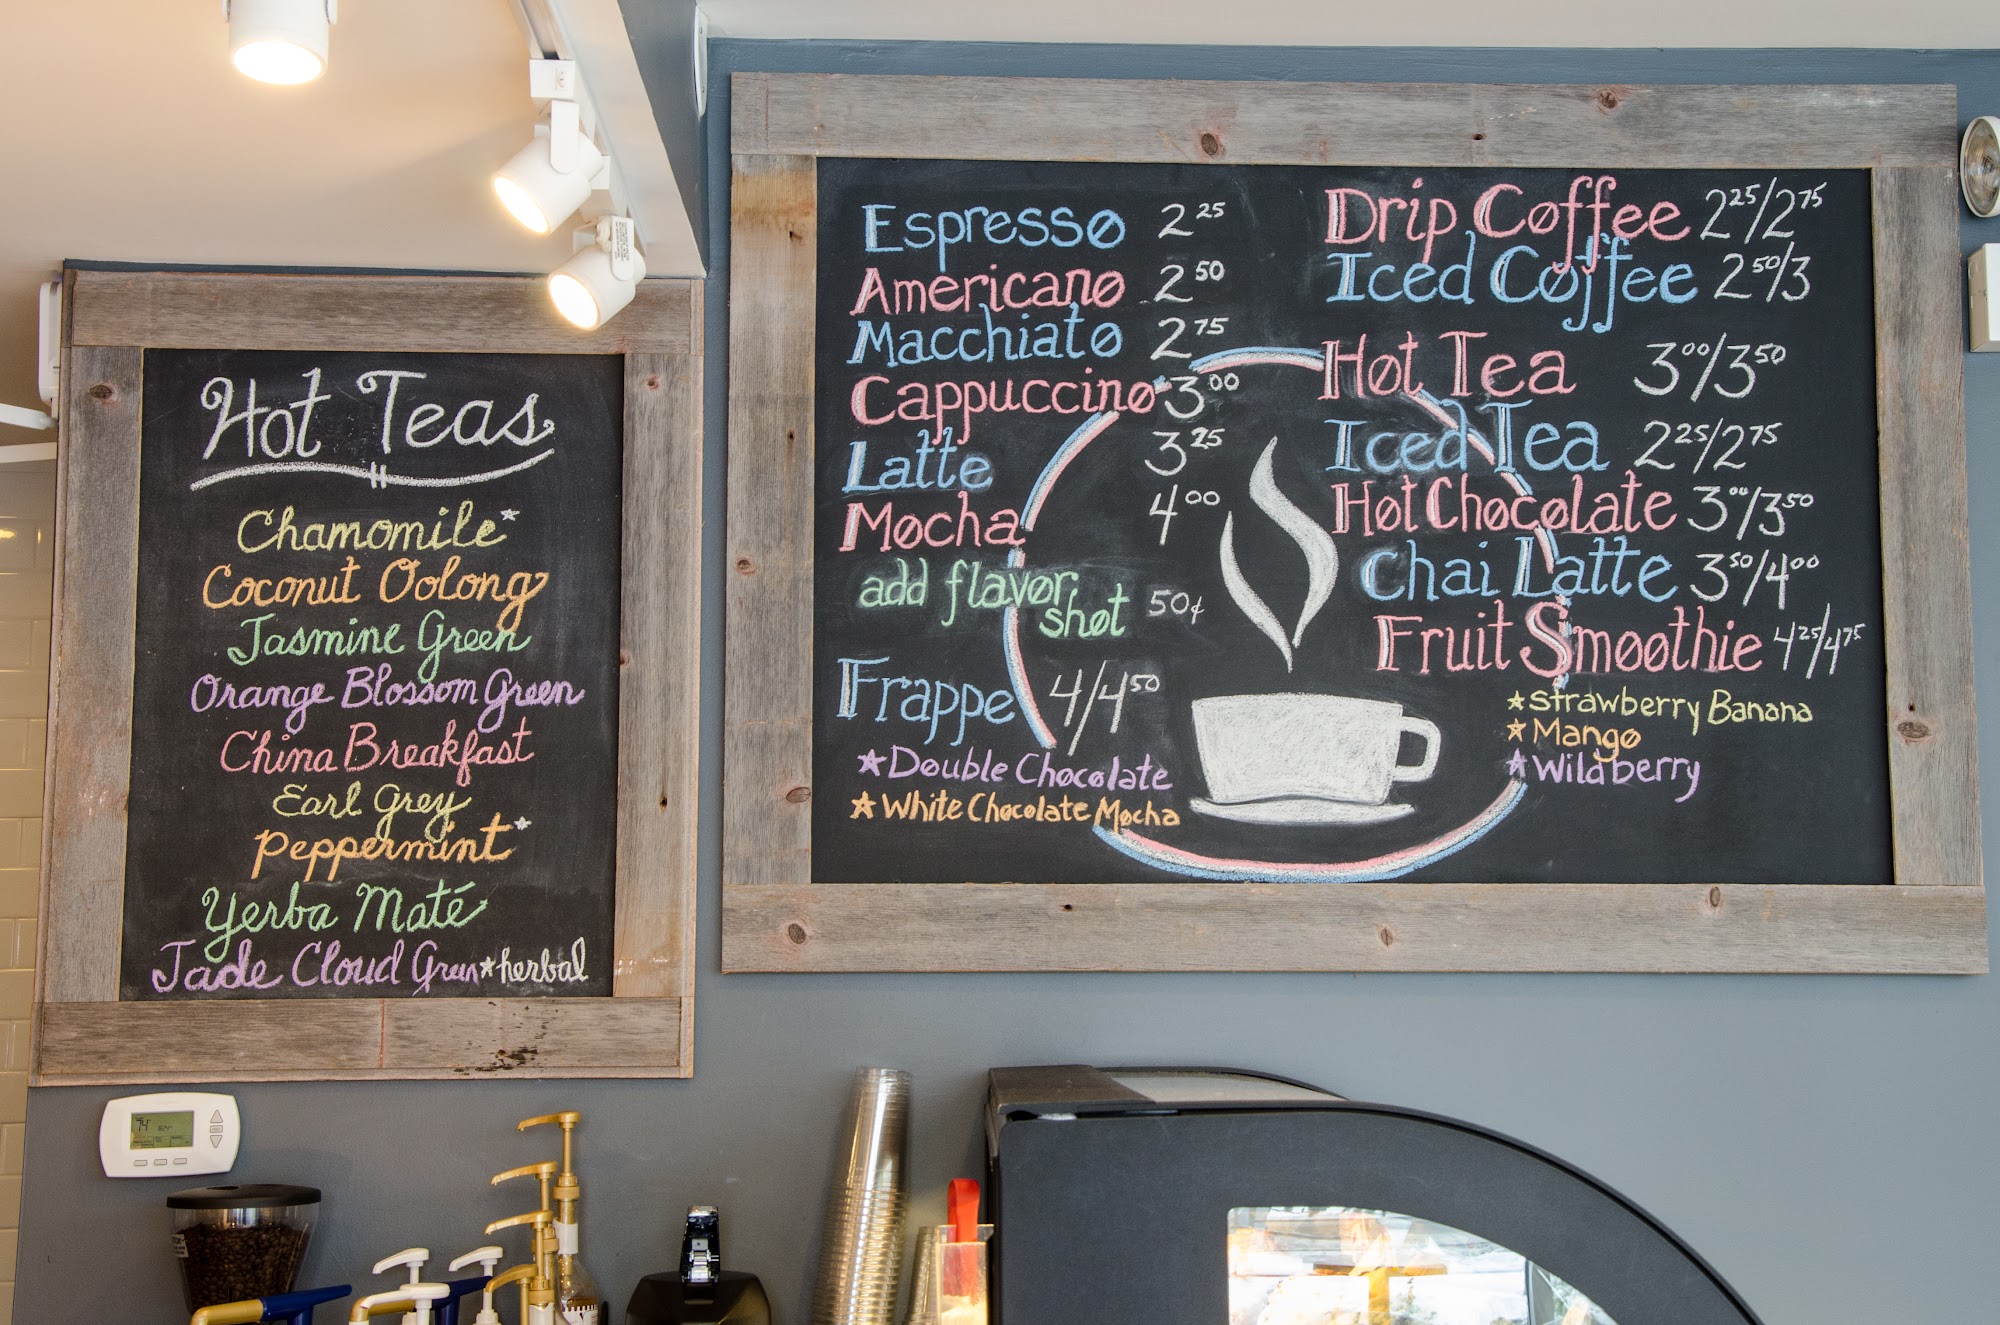 Hot Teas
Chamomile*
Coconut Oolong
Jasmine Green
Orange Blossom Green
China Breakfast
Earl Grey
Peppermint*
Yerba Maté
Jade Cloud Green *herbal
Espresso 2 25
Americano 2 50
Macchiato 2 75
Cappuccino 3 00
Latte 3 25
Mocha 4 00
add flavor shot 50¢
Frappe 4/4 50
★Double Chocolate
★White Chocolate Mocha
Drip Coffee 2 25/2 75
Iced Coffee 2 50/3
Hot Tea 3 00/3 50
Iced Tea 2 25/2 75
Hot Chocolate 3 00/3 50
Chai Latte 3 50/4 00
Fruit Smoothie 4 25/4 75
★Strawberry Banana
★Mango
★Wildberry
74